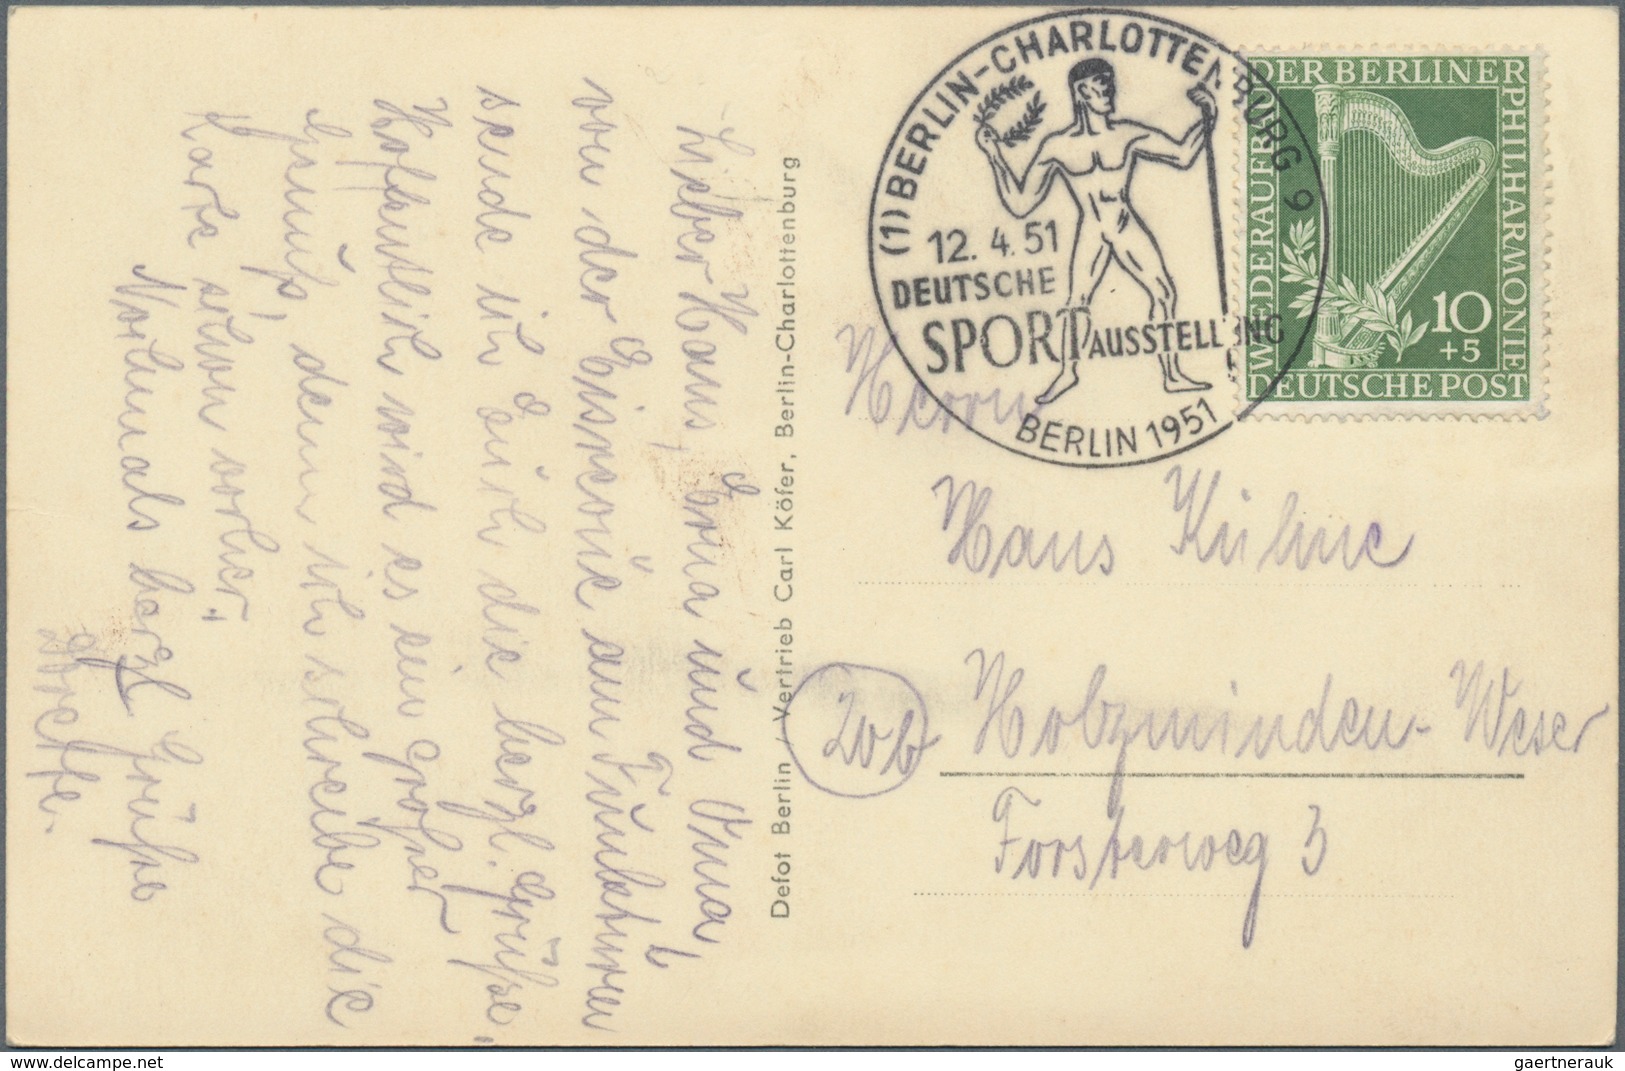 Lieber Hans, Erna und Oma,
von der Eisrevue am Funkturm
sende ich Euch die herzl. Grüße,
Hoffentlich wird es ein großer
Genuß, denn ich schreibe die
Karte schon vorher.
Nochmals herzl. Grüße
Defot Berlin / Vertrieb Carl Köfer, Berlin-Charlottenburg
(1) BERLIN-CHARLOTTENBURG 9
12. 4. 51
DEUTSCHE
SPORTAUSSTELLUNG
BERLIN 1951
WIEDERAUFBAU DER BERLINER PHILHARMONIE
10
+5
DEUTSCHE POST
Herrn
Hans Kühne
20b Holzminden-Weser
Forsterweg 3
www.delcampe.net
gaertnerauk